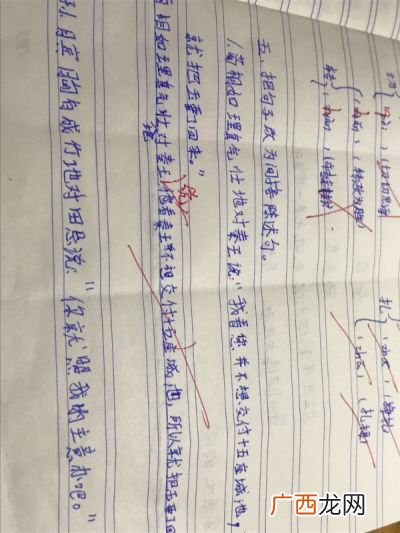 (转败为胜)
五、把句子改为间接陈述句。
1.蔺相如理直气壮地对秦王说:“我看您并不想交付十五座城池,
就把玉要了回来。”
相如理直气壮对秦王说,他看秦王并不想交付十五座城池,所以就把玉要了回
膑胸有成竹地对田忌说:“你就照我的主意办吧。”
广西龙网